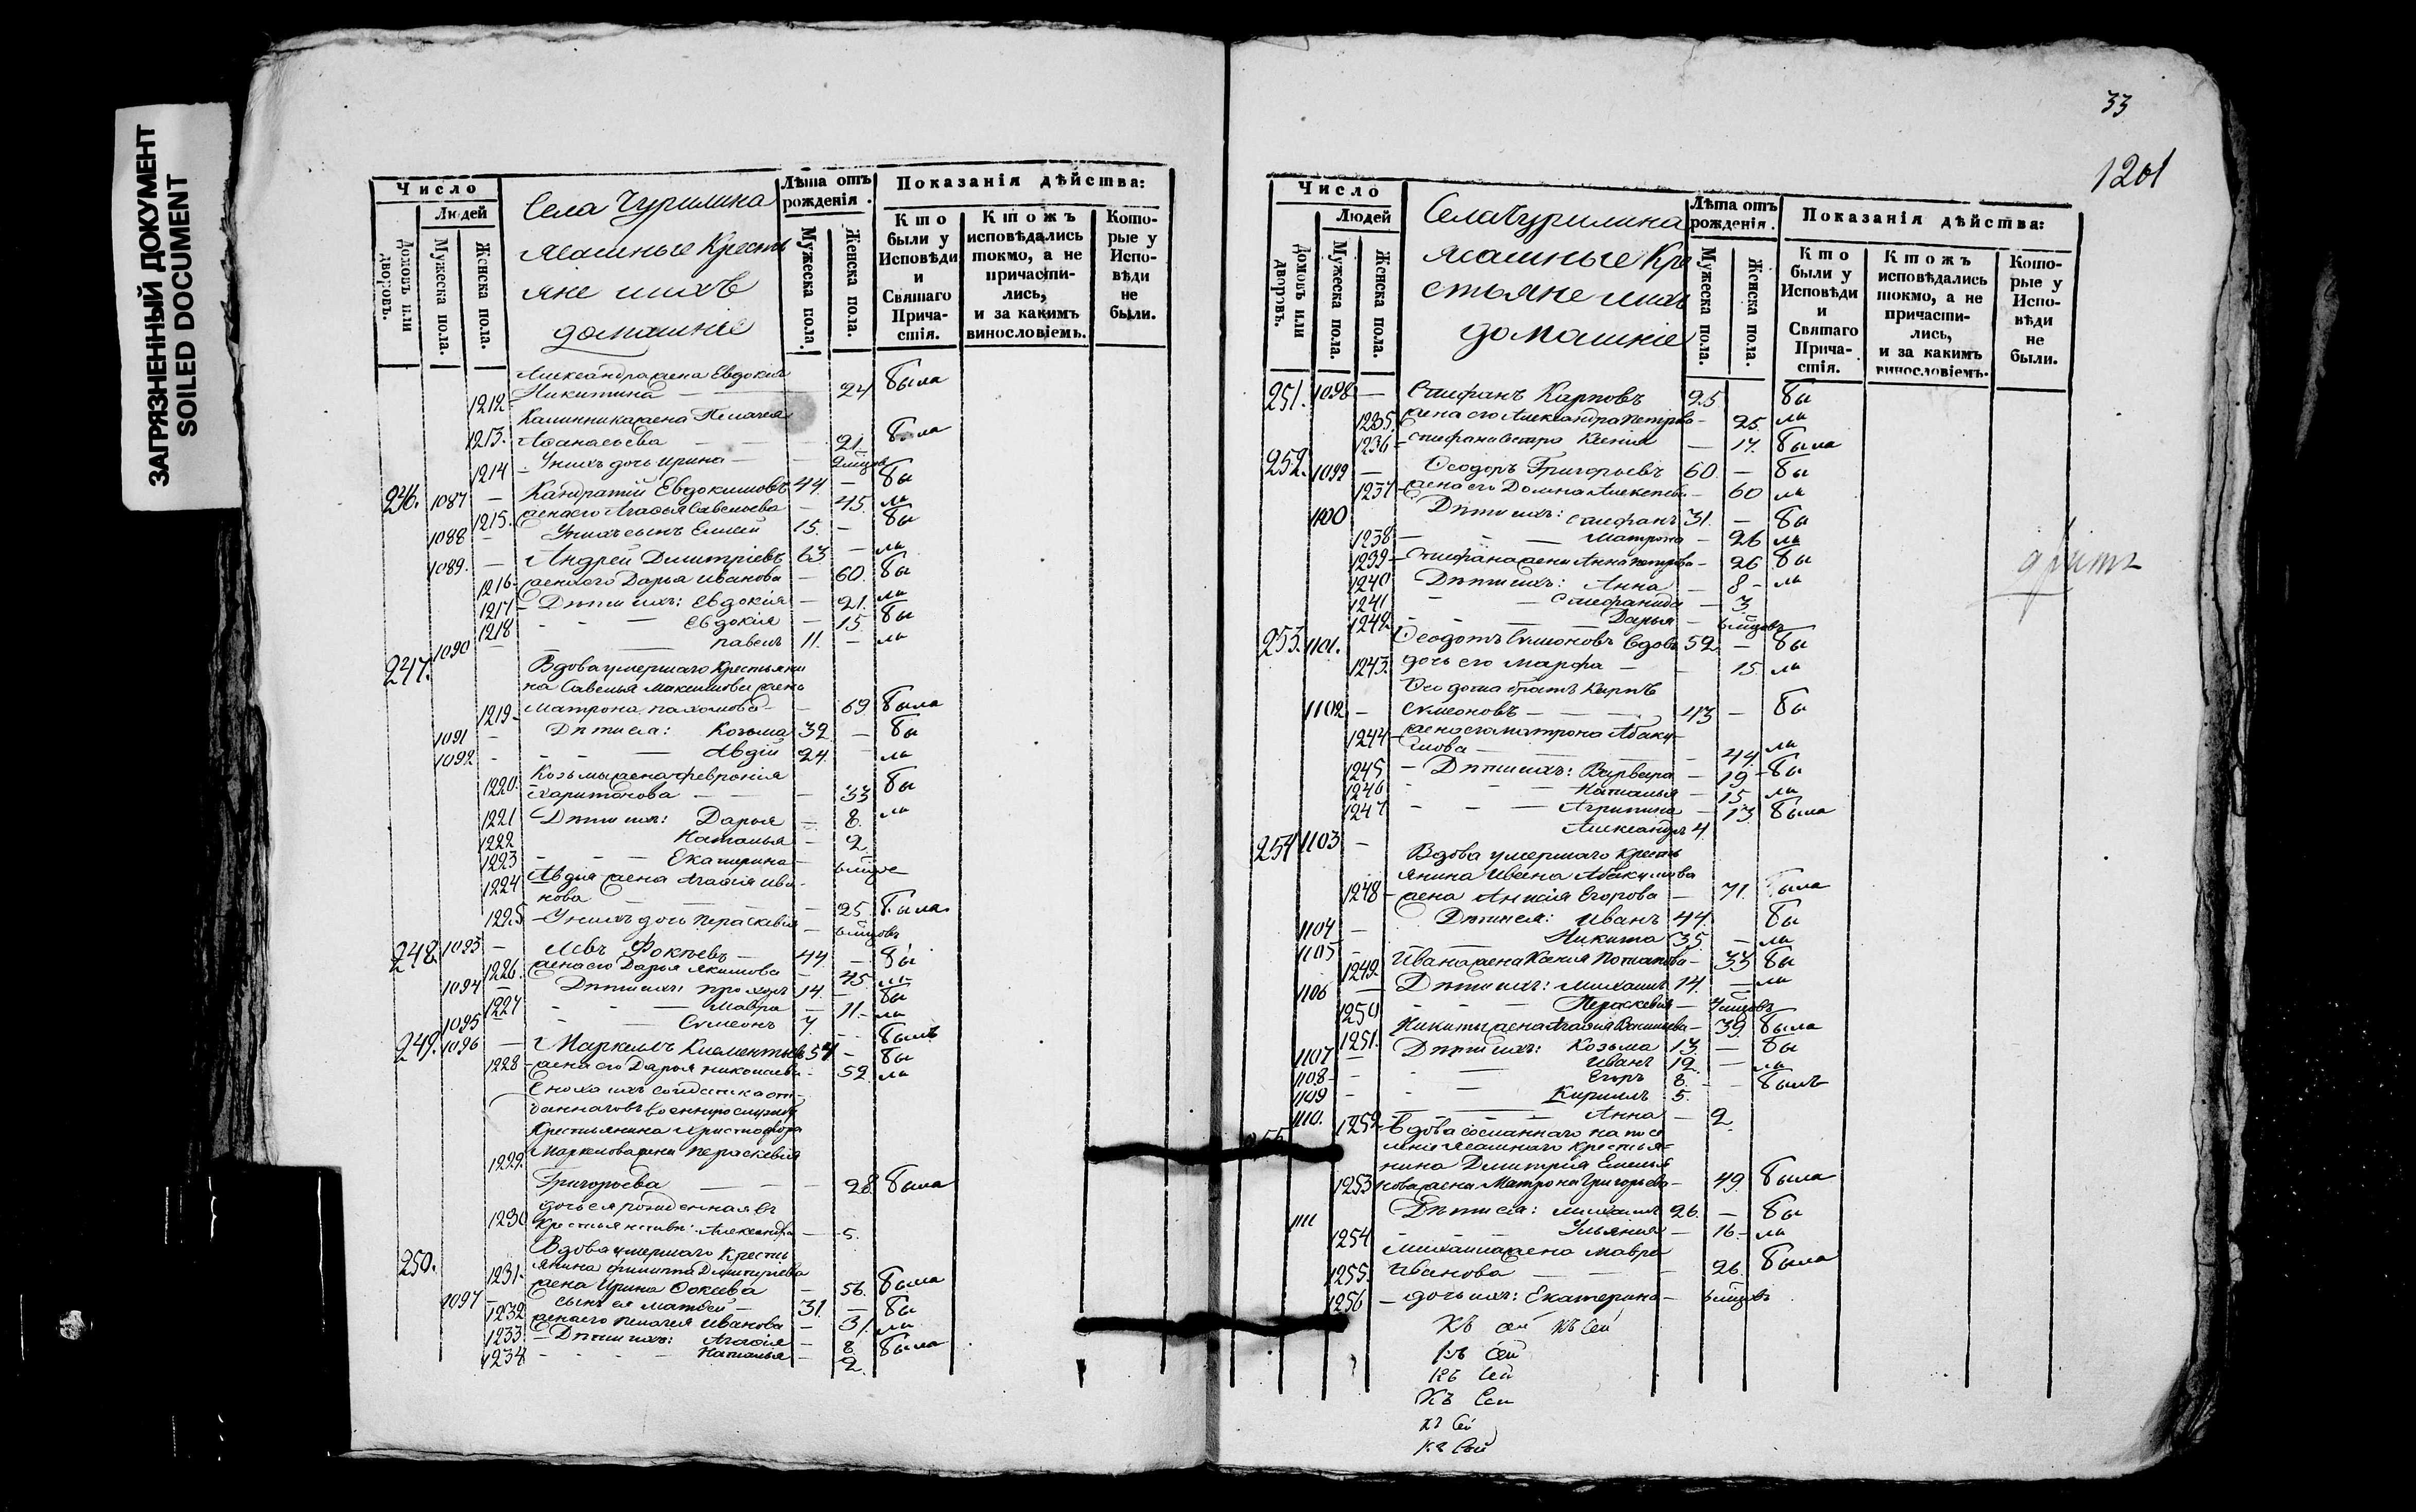 ЗАГРЯЗНЕННЫЙ ДОКУМЕНТ
SOILED DOCUMENT
Число
Людей
Домовъ или дворовъ.
Мужеска пола.
Женска пола.
Села Чурилина
ясашные Кресть
яне и ихъ
домашніе
Лѣта отъ рожденія.
Мужеска пола.
Женска пола.
Показанія дѣйства:
Кто были у Исповѣди и Святаго Причастія.
Ктожъ исповѣдались токмо, а не причастились, и за какимъ винословіемъ.
Которые у Исповѣди не были.
Александра жена Евдокія
1212 Никитина — 24 была
Калинника жена Пелагея
1213. Афанасьева — 21. была
1214 У нихъ дочь Ирина — 2 мцовъ
246. 1087 — Кандратій Евдокимовъ 44 — бы
1215. жена его Агафья Савельева — 45. ли
1088 — У нихъ сынъ Елисей 15. — бы
1089. — Андрей Димитріевъ 63 — ли
1216 жена его Дарья Иванова — 60. бы
1217 Дѣти ихъ: Евдокія — 21. ли
1218 Евдокія — 15 бы
1090 — Павелъ 11. — ли
247. Вдова умершаго Крестьяни
на Савелья Максимова жена
1219 Матрона Пахомова — 69 была
1091 — Дѣти ея: Козьма 32 — бы
1092 — Авдій 24. — ли
Козьмы жена Февронія
1220. Харитонова — 33 бы
1221 Дѣти ихъ: Дарья — 8. ли
1222 Наталья — 2
1223 Екатерина —
1224 Авдія жена Агафія Ива-
нова — 25 была
1225 У нихъ дочь Параскевія — мцовъ
248 1093 — Левъ Фокѣевъ — 44 — бы
1226. жена его Дарья Якимова — 45 ли
1094 — Дѣти ихъ: Прохоръ 14. — бы
1227 Мавра — 11 ли
1095 — Сѵмеонъ 7. — былъ
249. 1096 — Маркеллъ Климентьевъ 57 — бы
1228 жена его Дарья Николаева — 52 ли
Сноха ихъ солдатка от-
даннаго въ военную службу
Крестьянина Христофора
1229. Маркелова жена Параскевія
Григорьева — 28. была
дочь ея рожденная въ
1230 крестьянствѣ: Александра — 5.
250. Вдова умершаго Кресть
1231. янина Филиппа Димитріева
жена Ирина Фокѣева — 56. была
1097 — сынъ ея Матвей — 31. — бы
1232 жена его Пелагея Иванова — 31. ли
1233 Дѣти ихъ: Агафія — 8 была
1234 Наталья — 2.
33
1201
Число
Людей
Домовъ или дворовъ.
Мужеска пола.
Женска пола.
Села Чурилина
ясашные Кре
стьяне и ихъ
домашніе
Лѣта отъ рожденія.
Мужеска пола.
Женска пола.
Показанія дѣйства:
Кто были у Исповѣди и Святаго Причастія.
Ктожъ исповѣдались токмо, а не причастились, и за какимъ винословіемъ.
Которые у Исповѣди не были.
251. 1098 — Стефанъ Карповъ 25 бы
1235. жена его Александра Петрова — 25 ли
1236 Стефана сестра Ксенія — 17. была
252. 1099 — Ѳеодоръ Григорьевъ 60 — бы
1237 жена его Домна Алексеева — 60 ли
1100 Дѣти ихъ: Стефанъ 31. — бы
1238 Матрона — 26 ли
1239 Стефана жена Анна Петрова — 26 бы
1240 Дѣти ихъ: Анна — 8 — ли
1241 Стефанида — 3
1242 Дарья — мцовъ
253. 1101. Ѳеодотъ Сѵмеоновъ вдовъ 52 — бы
1243. дочь его Марфа — 15. ли
Ѳеодота братъ Карпъ
1102 — Сѵмеоновъ — 43 — бы
1244 жена его Матрона Абаку-
мова — 44. ли
1245 Дѣти ихъ: Варвара — 19 бы
1246 Наталья — 15. ли
1247 Агрипина — 13 была
1103 — Александръ 4.
254 Вдова умершаго кресть
янина Ивана Абакумова
1248 жена Анисія Егорова — 71. была
1104 — Дѣти ея: Иванъ 44. бы
1105 — Никита 35. — ли
1249 Ивана жена Ксенія Потапова — 33 бы
1106 — Дѣти ихъ: Михаилъ 14. — ли
1250 Параскевія — мцовъ
1251. Никиты жена Агафія — 39. была
1107 — Дѣти ихъ: Козьма 13. — бы
1108 — Иванъ 12 — ли
1109 — Егоръ 8. — былъ
1110. Кириллъ 5.
1252 Анна — 2.
255 Вдова сосланнаго на посе
леніе ясашнаго крестья-
нина Димитрія Емелья
1253 нова жена Матрона Григорьева — 49. была
1111 Дѣти ея: Михаилъ 26. — бы
1254 Ульянія — 16. ли
Михаила жена Мавра
1255. Иванова — 26. была
1256 — дочь ихъ: Екатерина — мцовъ
Къ сей Къ сей
Къ сей
Къ сей
Къ сей
Къ сей
Къ сей